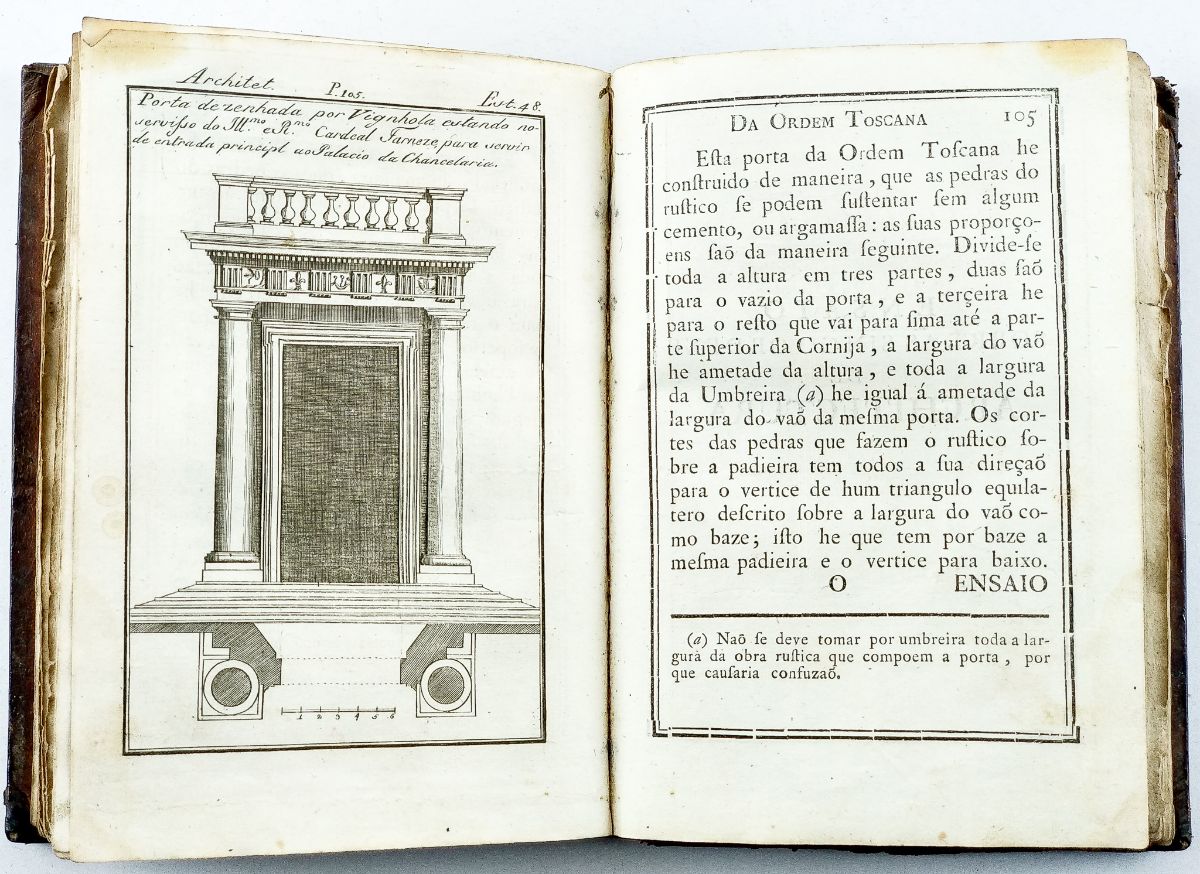 Architet. P. 105. Est. 48.
Porta dezenhada por Vignhola estando no
servisso do Ill.mo e R.mo Cardeal Farneze, para servir
de entrada principl ao Palacio da Chancelaria.
1 2 3 4 5 6
DA ORDEM TOSCANA 105
Eſta porta da Ordem Toſcana he
conſtruido de maneira, que as pedras do
ruſtico ſe podem ſuſtentar ſem algum
cemento, ou argamaſſa: as ſuas proporço-
ens ſaõ da maneira ſeguinte. Divide-ſe
toda a altura em tres partes, duas ſaõ
para o vazio da porta, e a terçeira he
para o reſto que vai para ſima até a par-
te ſuperior da Cornija, a largura do vaõ
he ametade da altura, e toda a largura
da Umbreira (a) he igual á ametade da
largura do vaõ da meſma porta. Os cor-
tes das pedras que fazem o ruſtico ſo-
bre a padieira tem todos a ſua direçaõ
para o vertice de hum triangulo equila-
tero deſcrito ſobre a largura do vaõ co-
mo baze; iſto he que tem por baze a
meſma padieira e o vertice para baixo.
O ENSAIO
(a) Naõ ſe deve tomar por umbreira toda a lar-
gura da obra ruſtica que compoem a porta, por
que cauſaria confuzaõ.